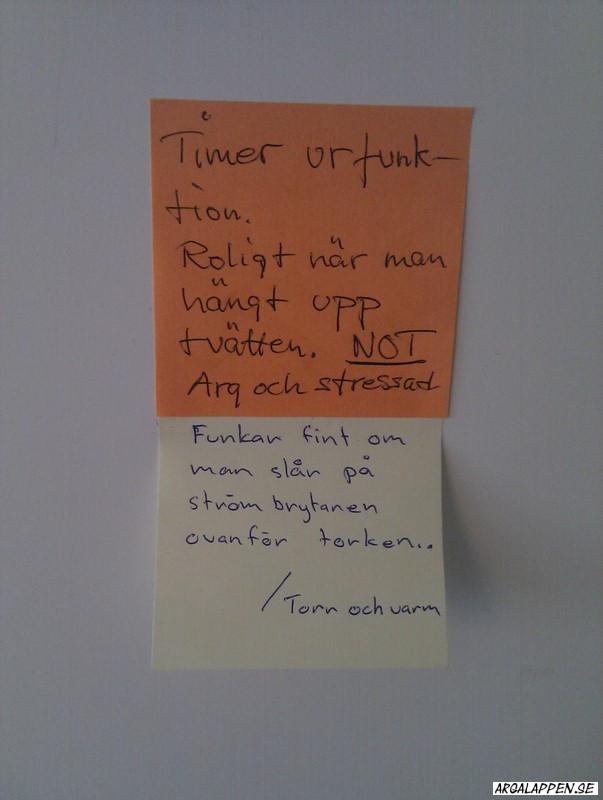 Timer ur funk-
tion.
Roligt när man
hängt upp
tvätten. NOT
Arg och stressad
Funkar fint om
man slår på
strömbrytanen
ovanför torken..
/Torr och varm
ARGALAPPEN.SE